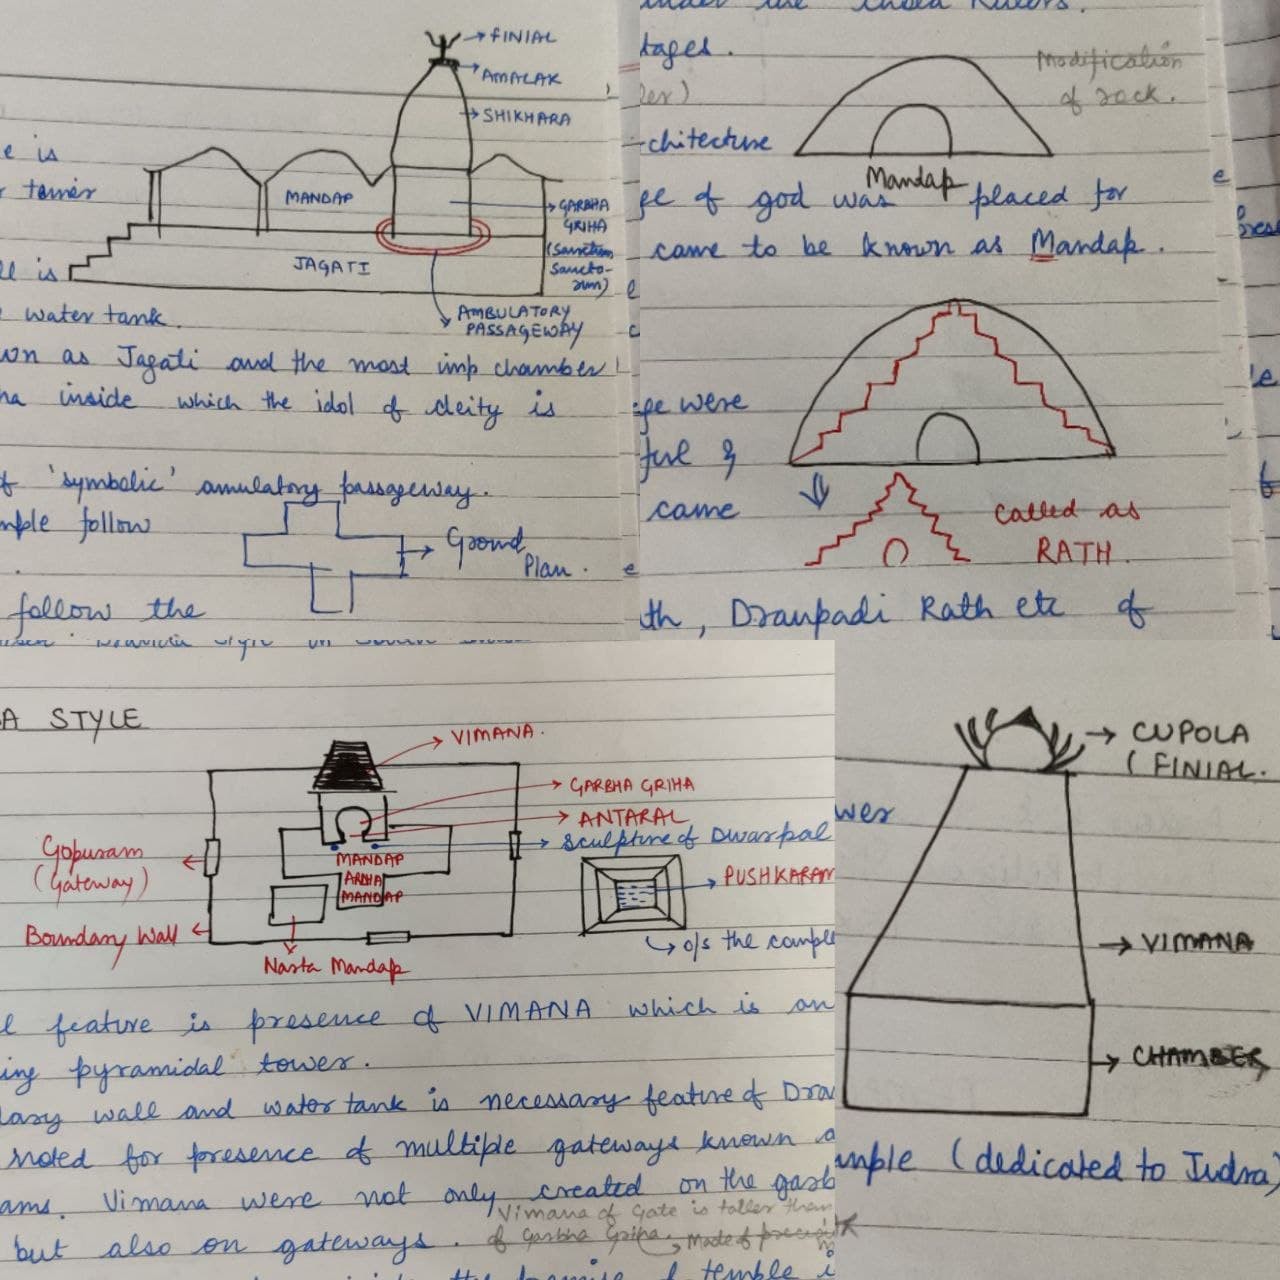 FINIAL
AMALAK
SHIKHARA
e is
MANDAP
GARBHA
GRIHA
(Sanctum
Sancto-
rum)
JAGATI
ll is
AMBULATORY
PASSAGEWAY
water tank.
wn as Jagati and the most imp chamber
ha inside which the idol of deity is
f 'symbolic' amulatory passageway.
mple follow
Ground
Plan.
follow the
under the
Rulers.
tages.
Modification
of rock.
chitecture
Mandap
ge of god was placed for
came to be known as Mandap.
ge were
ful &
came
Called as
RATH.
th, Draupadi Rath etc of
A STYLE
VIMANA.
GARBHA GRIHA
ANTARAL
Sculpture of Dwarpal
Gopuram
(Gateway)
MANDAP
ARDHA
MANDAP
PUSHKARAN
Boundary Wall
o/s the comple
Nasta Mandap
l feature is presence of VIMANA which is an
ing pyramidal tower.
dary wall and water tank is necessary feature of Dra
noted for presence of multiple gateways known a
ams. Vimana were not only created on the garb
Vimana of Gate is taller than
but also on gateways.
of Garbha Griha. Made of
temple i
CUPOLA
(FINIAL.
wer
VIMANA
CHAMBER
mple (dedicated to Indra)